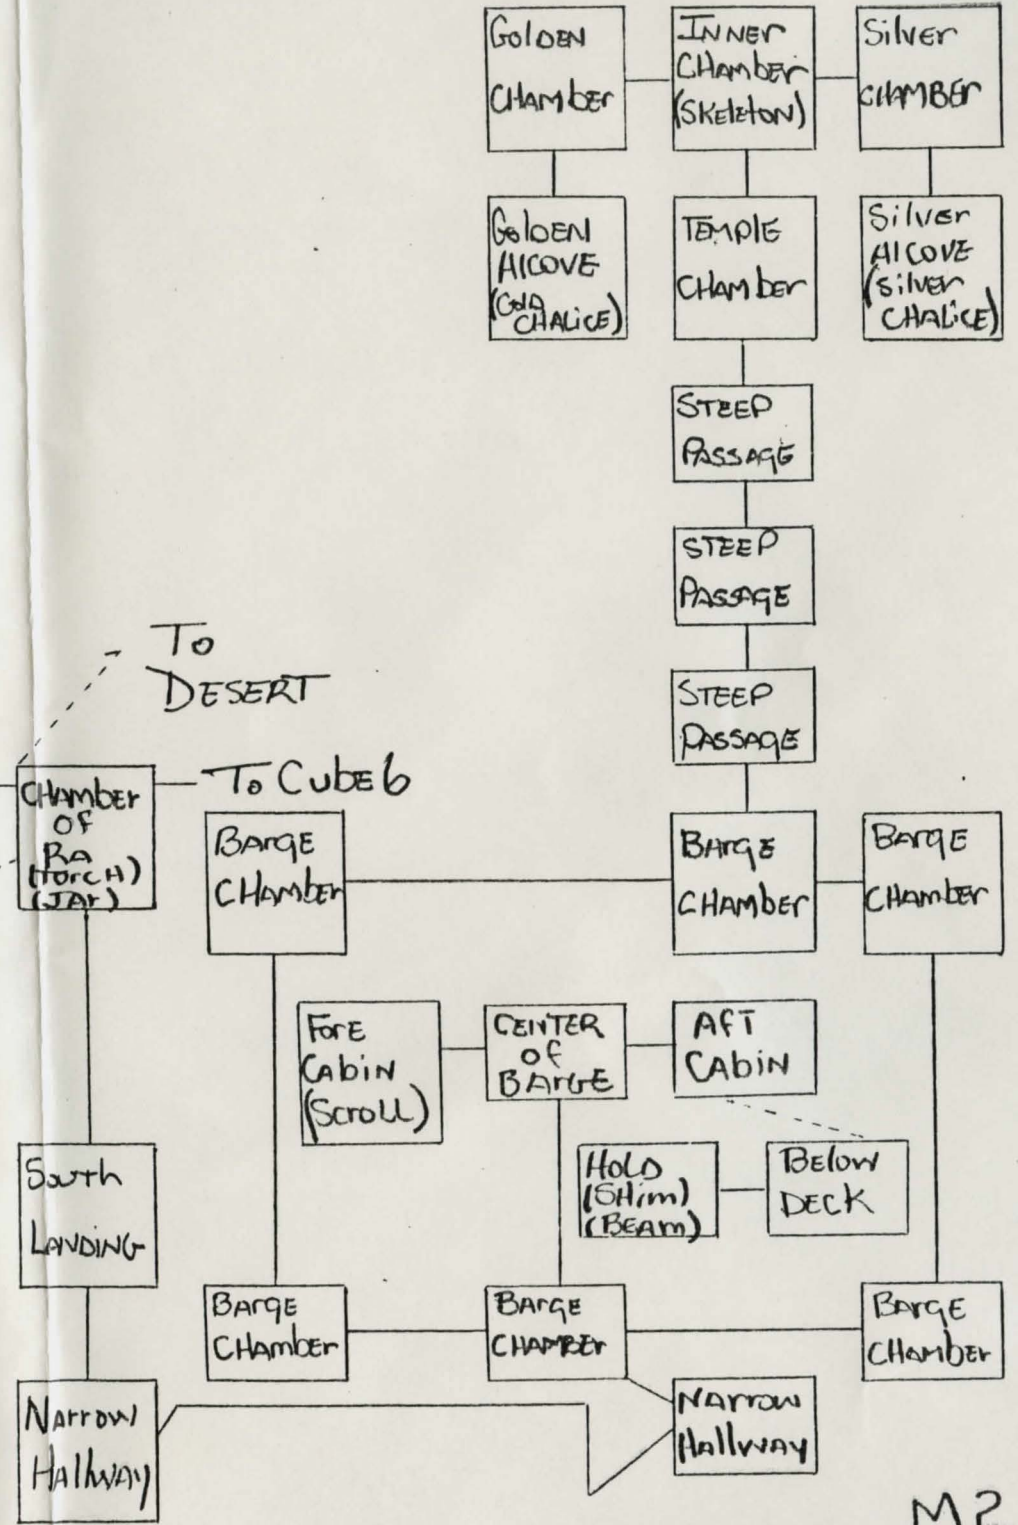 GOLDEN
CHAMBER
INNER
CHAMBER
(SKELETON)
SILVER
CHAMBER
GOLDEN
ALCOVE
(GOLD
CHALICE)
TEMPLE
CHAMBER
SILVER
ALCOVE
(SILVER
CHALICE)
STEEP
PASSAGE
STEEP
PASSAGE
STEEP
PASSAGE
TO
DESERT
TO CUBE 6
CHAMBER
OF
RA
(TORCH)
(JAR)
BARGE
CHAMBER
BARGE
CHAMBER
BARGE
CHAMBER
FORE
CABIN
(SCROLL)
CENTER
OF
BARGE
AFT
CABIN
HOLD
(SHIM)
(BEAM)
BELOW
DECK
SOUTH
LANDING
BARGE
CHAMBER
BARGE
CHAMBER
BARGE
CHAMBER
NARROW
HALLWAY
NARROW
HALLWAY
M2